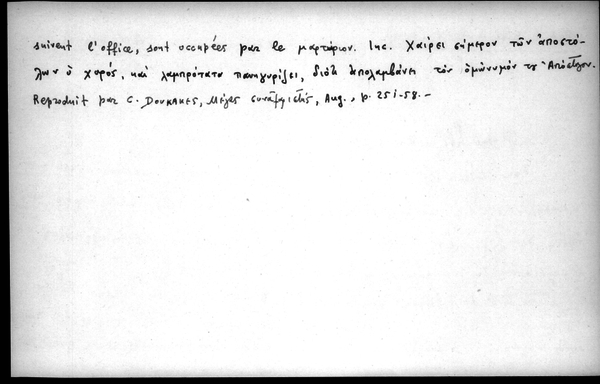 suivent l'office, sont occupées par le μαρτύριον. Inc. Χαίρει σήμερον τῶν ἀποστό-
λων ὁ χορός, καὶ λαμπρότατα πανηγυρίζει, διότι ἀπολαμβάνει τὸν ὁμώνυμόν τῳ Ἀπόστολον.
Reproduit par C. DOUKAKES, Μέγας συναξαριστής, Aug., p. 251-58. -